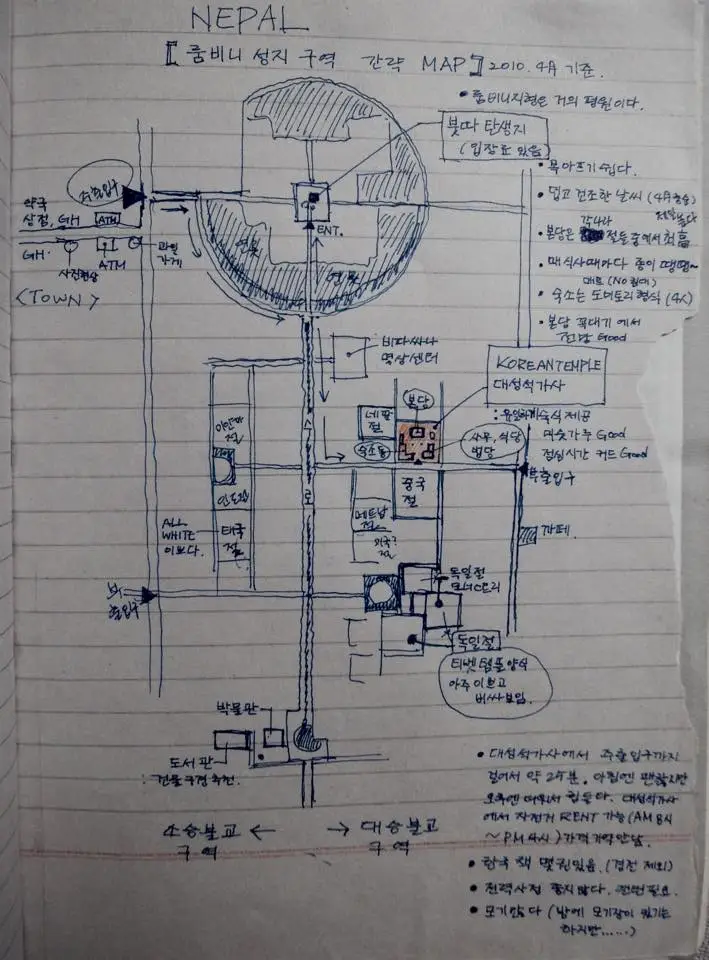 NEPAL
【 룸비니 성지 구역 간략 MAP 】 2010. 4月 기준.
• 룸비니지형은 거의 평원이다.
붓따 탄생지
(입장료 있음)
• 목 아프기 쉽다.
• 덥고 건조한 날씨 (4月
주출입구
약국
상점, GH
ATM
GH.
사진현상
ATM
과일
가게
<TOWN>
ENT.
연못
연못
각나라
• 본당은 절들중에서 최高
• 매식사때마다 종이 땡땡~
매트 (NO침대)
• 숙소는 도미토리형식 (4人)
• 본당 꼭대기에서
전망 Good
비파싸나
명상센터
KOREAN TEMPLE
대성석가사
본당
네팔
절
숙소동
사무, 식당
법당
숙식 제공
Good
점심시간 커드 Good
중국
절
부출입구
수
로
ALL
WHITE
이쁘다.
태국
절
베트남
절
외국?
절
까페
부
출입구
독일절
모너스트리
독일절
티벳템플양식
아주 이쁘고
비싸보임.
박물관
도서관
건물구경추천.
소승불교 ←
구역
→ 대승불교
구역
• 대성석가사에서 주출입구까지
걸어서 약 25분. 아침엔 괜찮지만
오후엔 더워서 힘들다. 대성석가사
에서 자전거 RENT 가능 (AM 8시
~PM 4시) 가격기억안남.
• 한국 책 몇권있음. (경전 제외)
• 전력사정 좋지않다. 전면필요.
• 모기많다 (밤에 모기장이 있기는
하지만......)